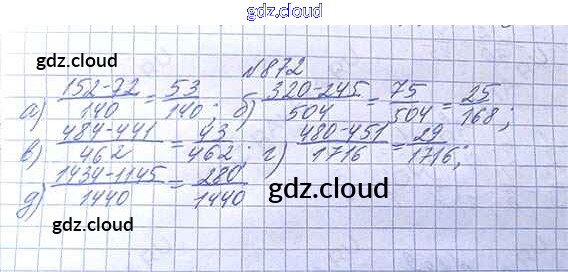 gdz.cloud
gdz.cloud
№872
а) 152-72/140 = 53/140; б) 320-245/504 = 75/504 = 25/168;
в) 484-441/462 = 43/462; г) 480-451/1716 = 29/1716;
д) 1434-1145/1440 = 280/1440
gdz.cloud
gdz.cloud